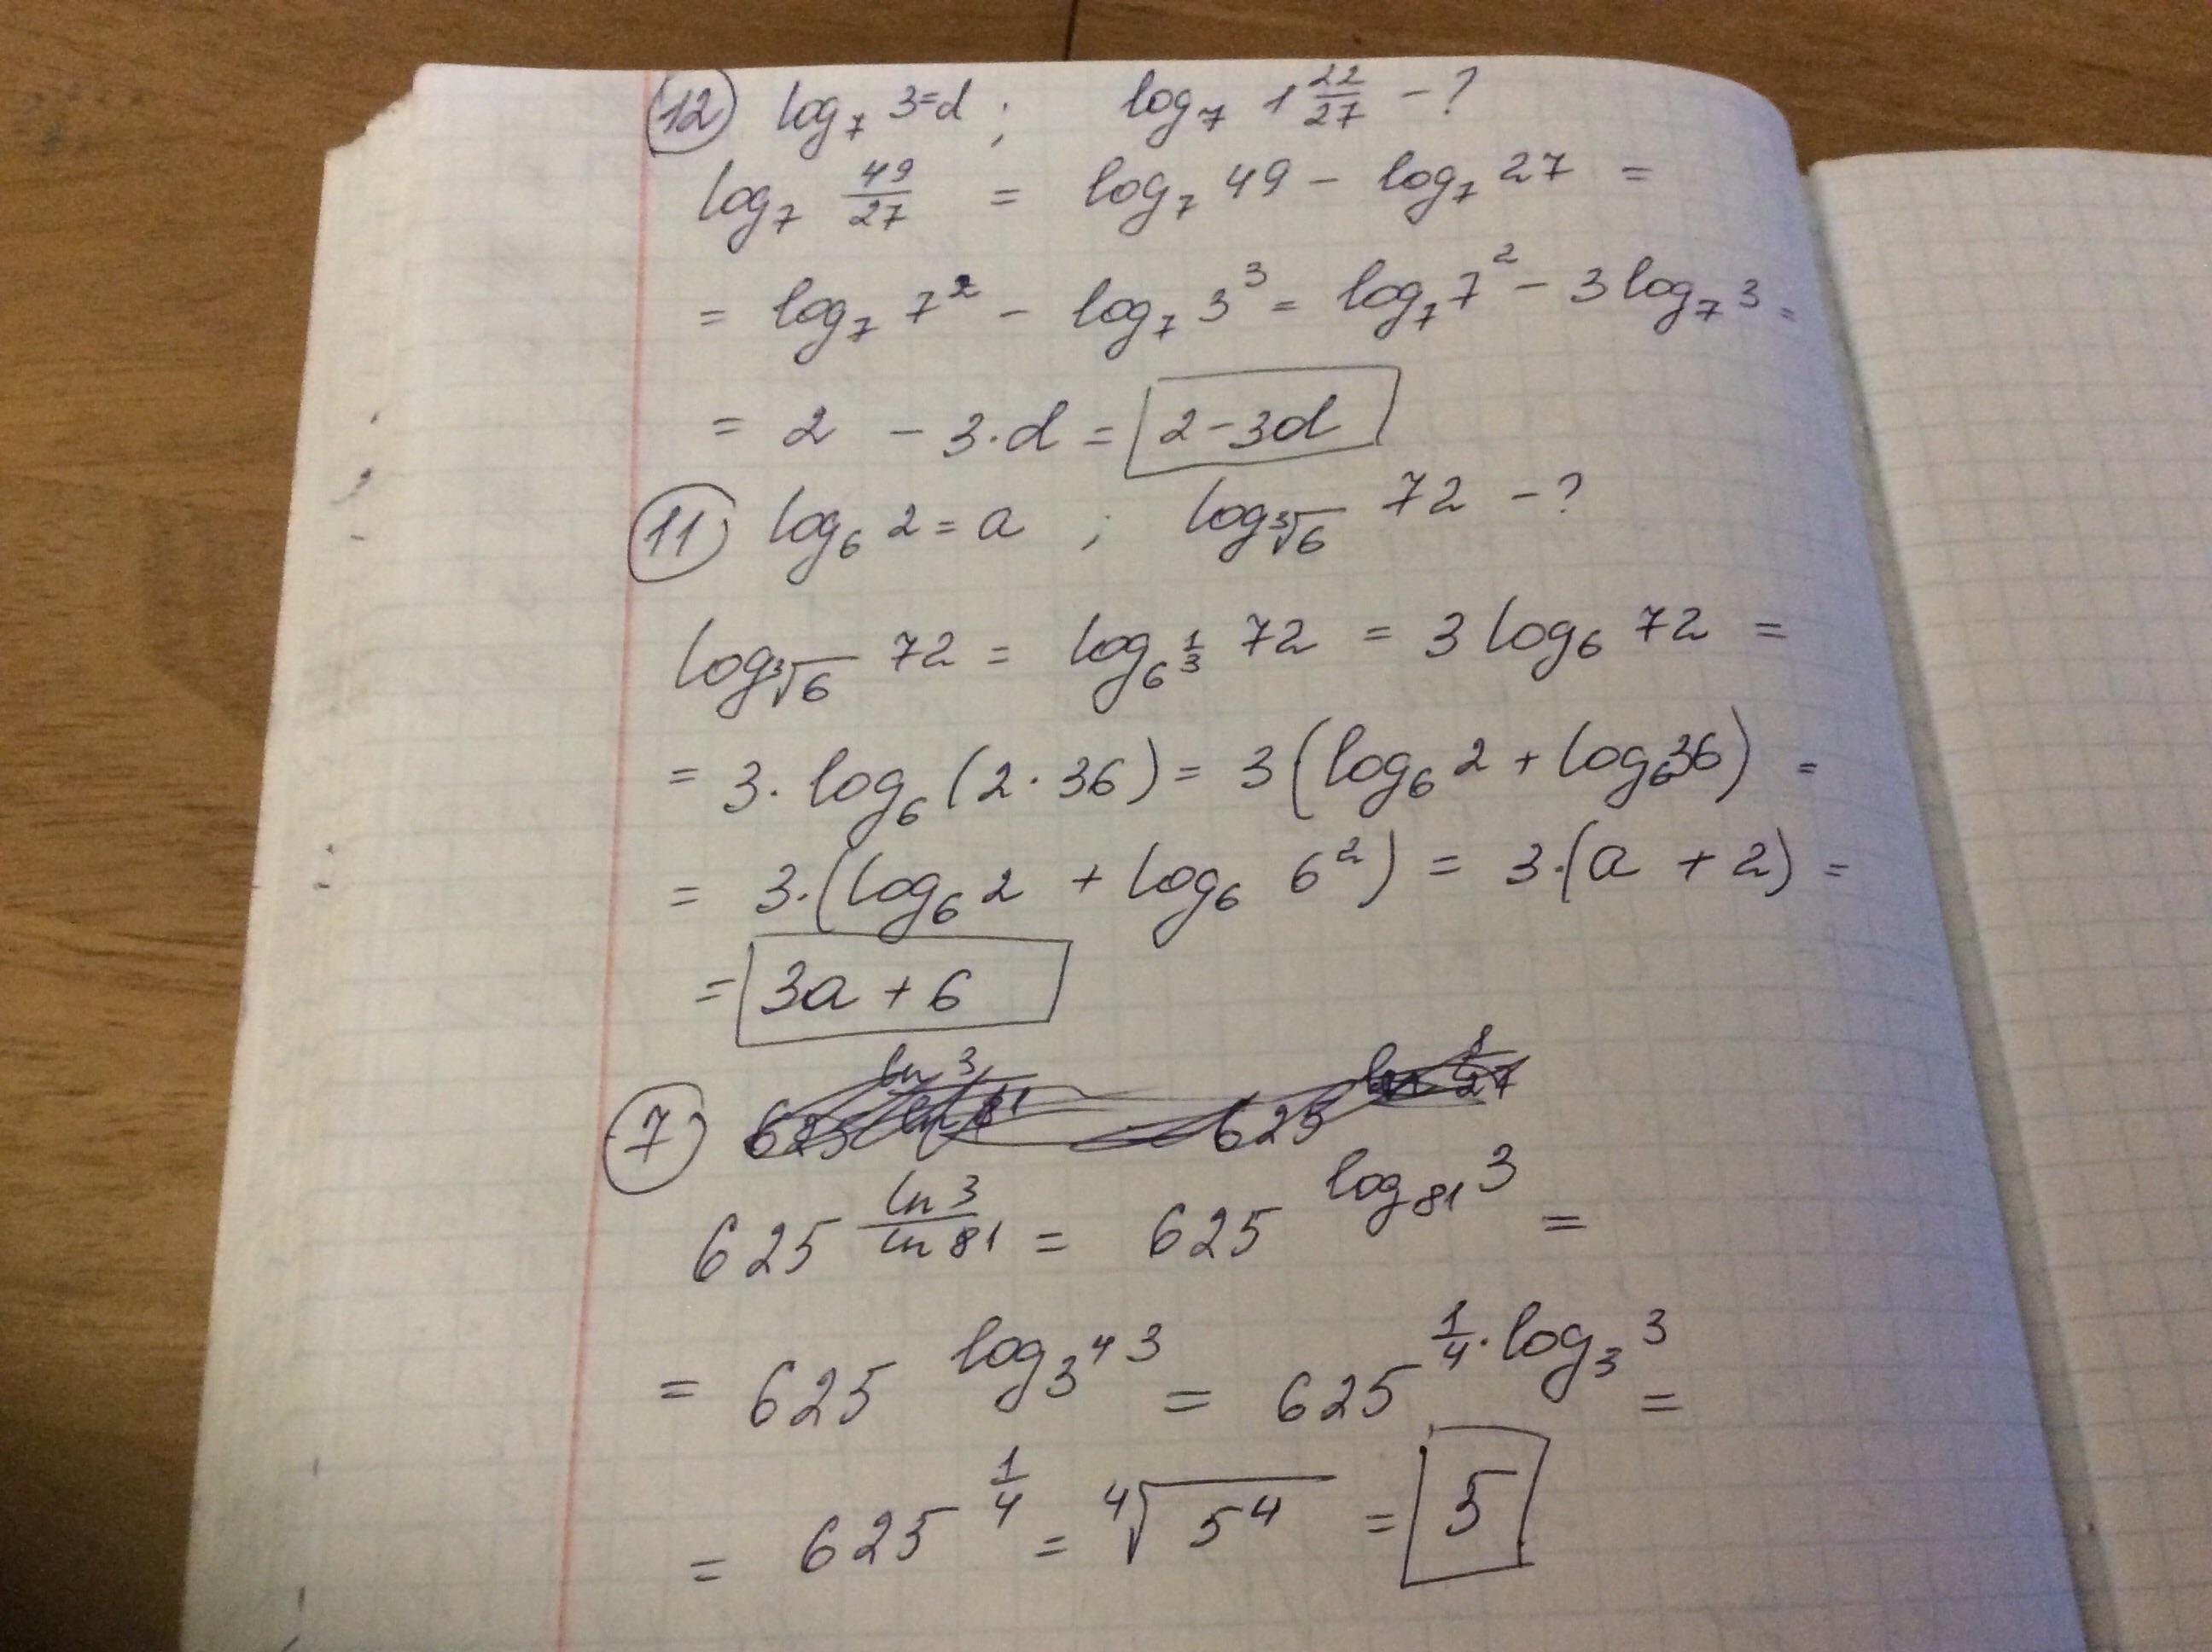 12 log₇ 3=d ; log₇ 1 22/27 - ?
log₇ 49/27 = log₇ 49 - log₇ 27 =
= log₇ 7² - log₇ 3³ = log₇ 7² - 3 log₇ 3 =
= 2 - 3·d = 2-3d
11 log₆ 2 = a ; log_∛6 72 - ?
log_∛6 72 = log_6^(1/3) 72 = 3 log₆ 72 =
= 3· log₆ (2·36) = 3 (log₆ 2 + log₆ 36) =
= 3·(log₆ 2 + log₆ 6²) = 3·(a + 2) =
= 3a + 6
7
625^(ln 3/ln 81) = 625^(log₈₁ 3) =
= 625^(log_3⁴ 3) = 625^(1/4 · log₃ 3) =
= 625^(1/4) = ⁴√5⁴ = 5